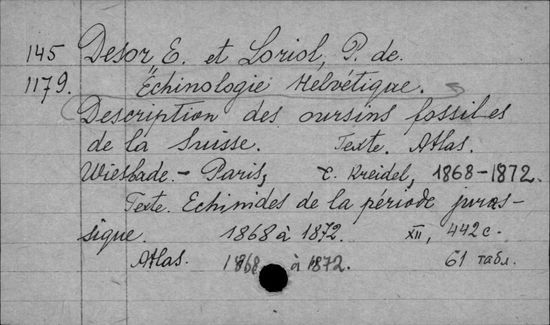 145 Desor E. et Loriol, P. de.
1179. Echinologie Helvétique.
Description des oursins fossiles
de la Suisse. Texte. Atlas.
Wiesbade. - Paris, C. Kreidel, 1868-1872.
Texte. Echinides de la période juras-
sique. 1868 à 1872. XII, 442 с.
Atlas. 1868 à 1872. 61 табл.